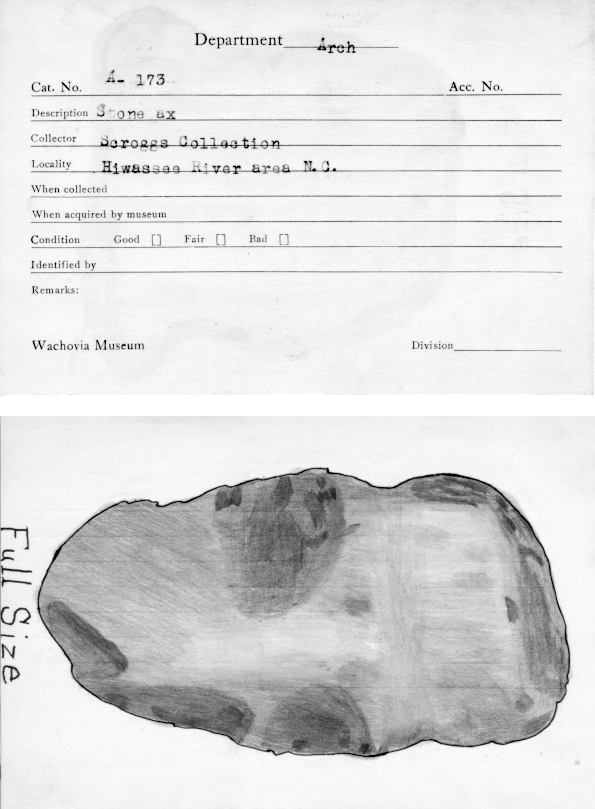 Department Arch
Cat. No. A- 173 Acc. No.
Description Stone ax
Collector Scroggs Collection
Locality Hiwassee River area N.C.
When collected
When acquired by museum
Condition Good [] Fair [] Bad []
Identified by
Remarks:
Wachovia Museum Division
Full Size